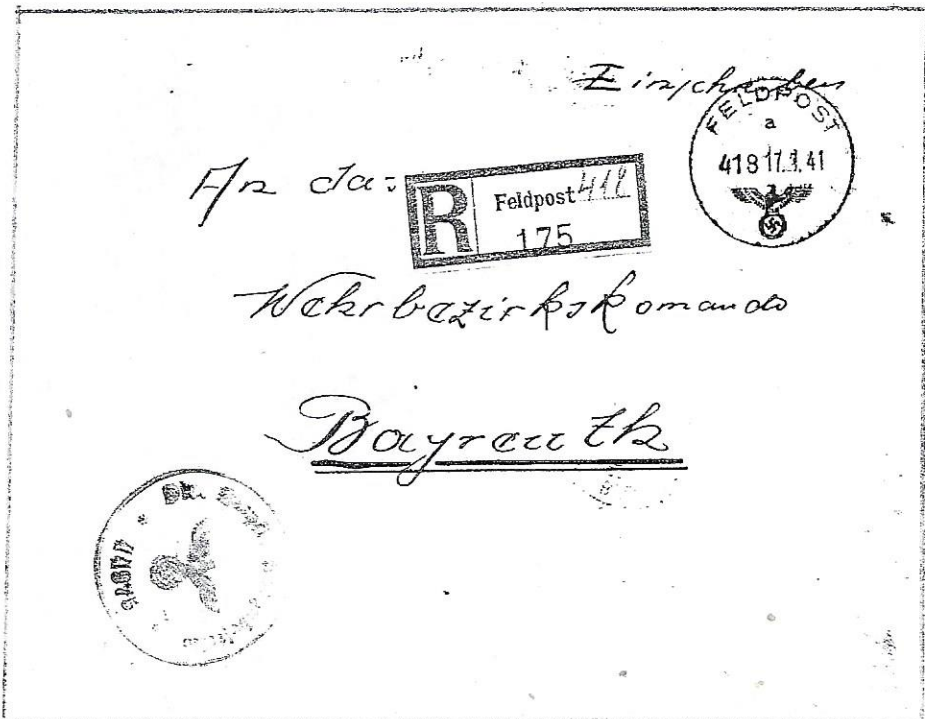 Einschreiben
FELDPOST
a
418 17.3.41
An das
R Feldpost 418
175
Wehrbezirkskomando
Bayreuth